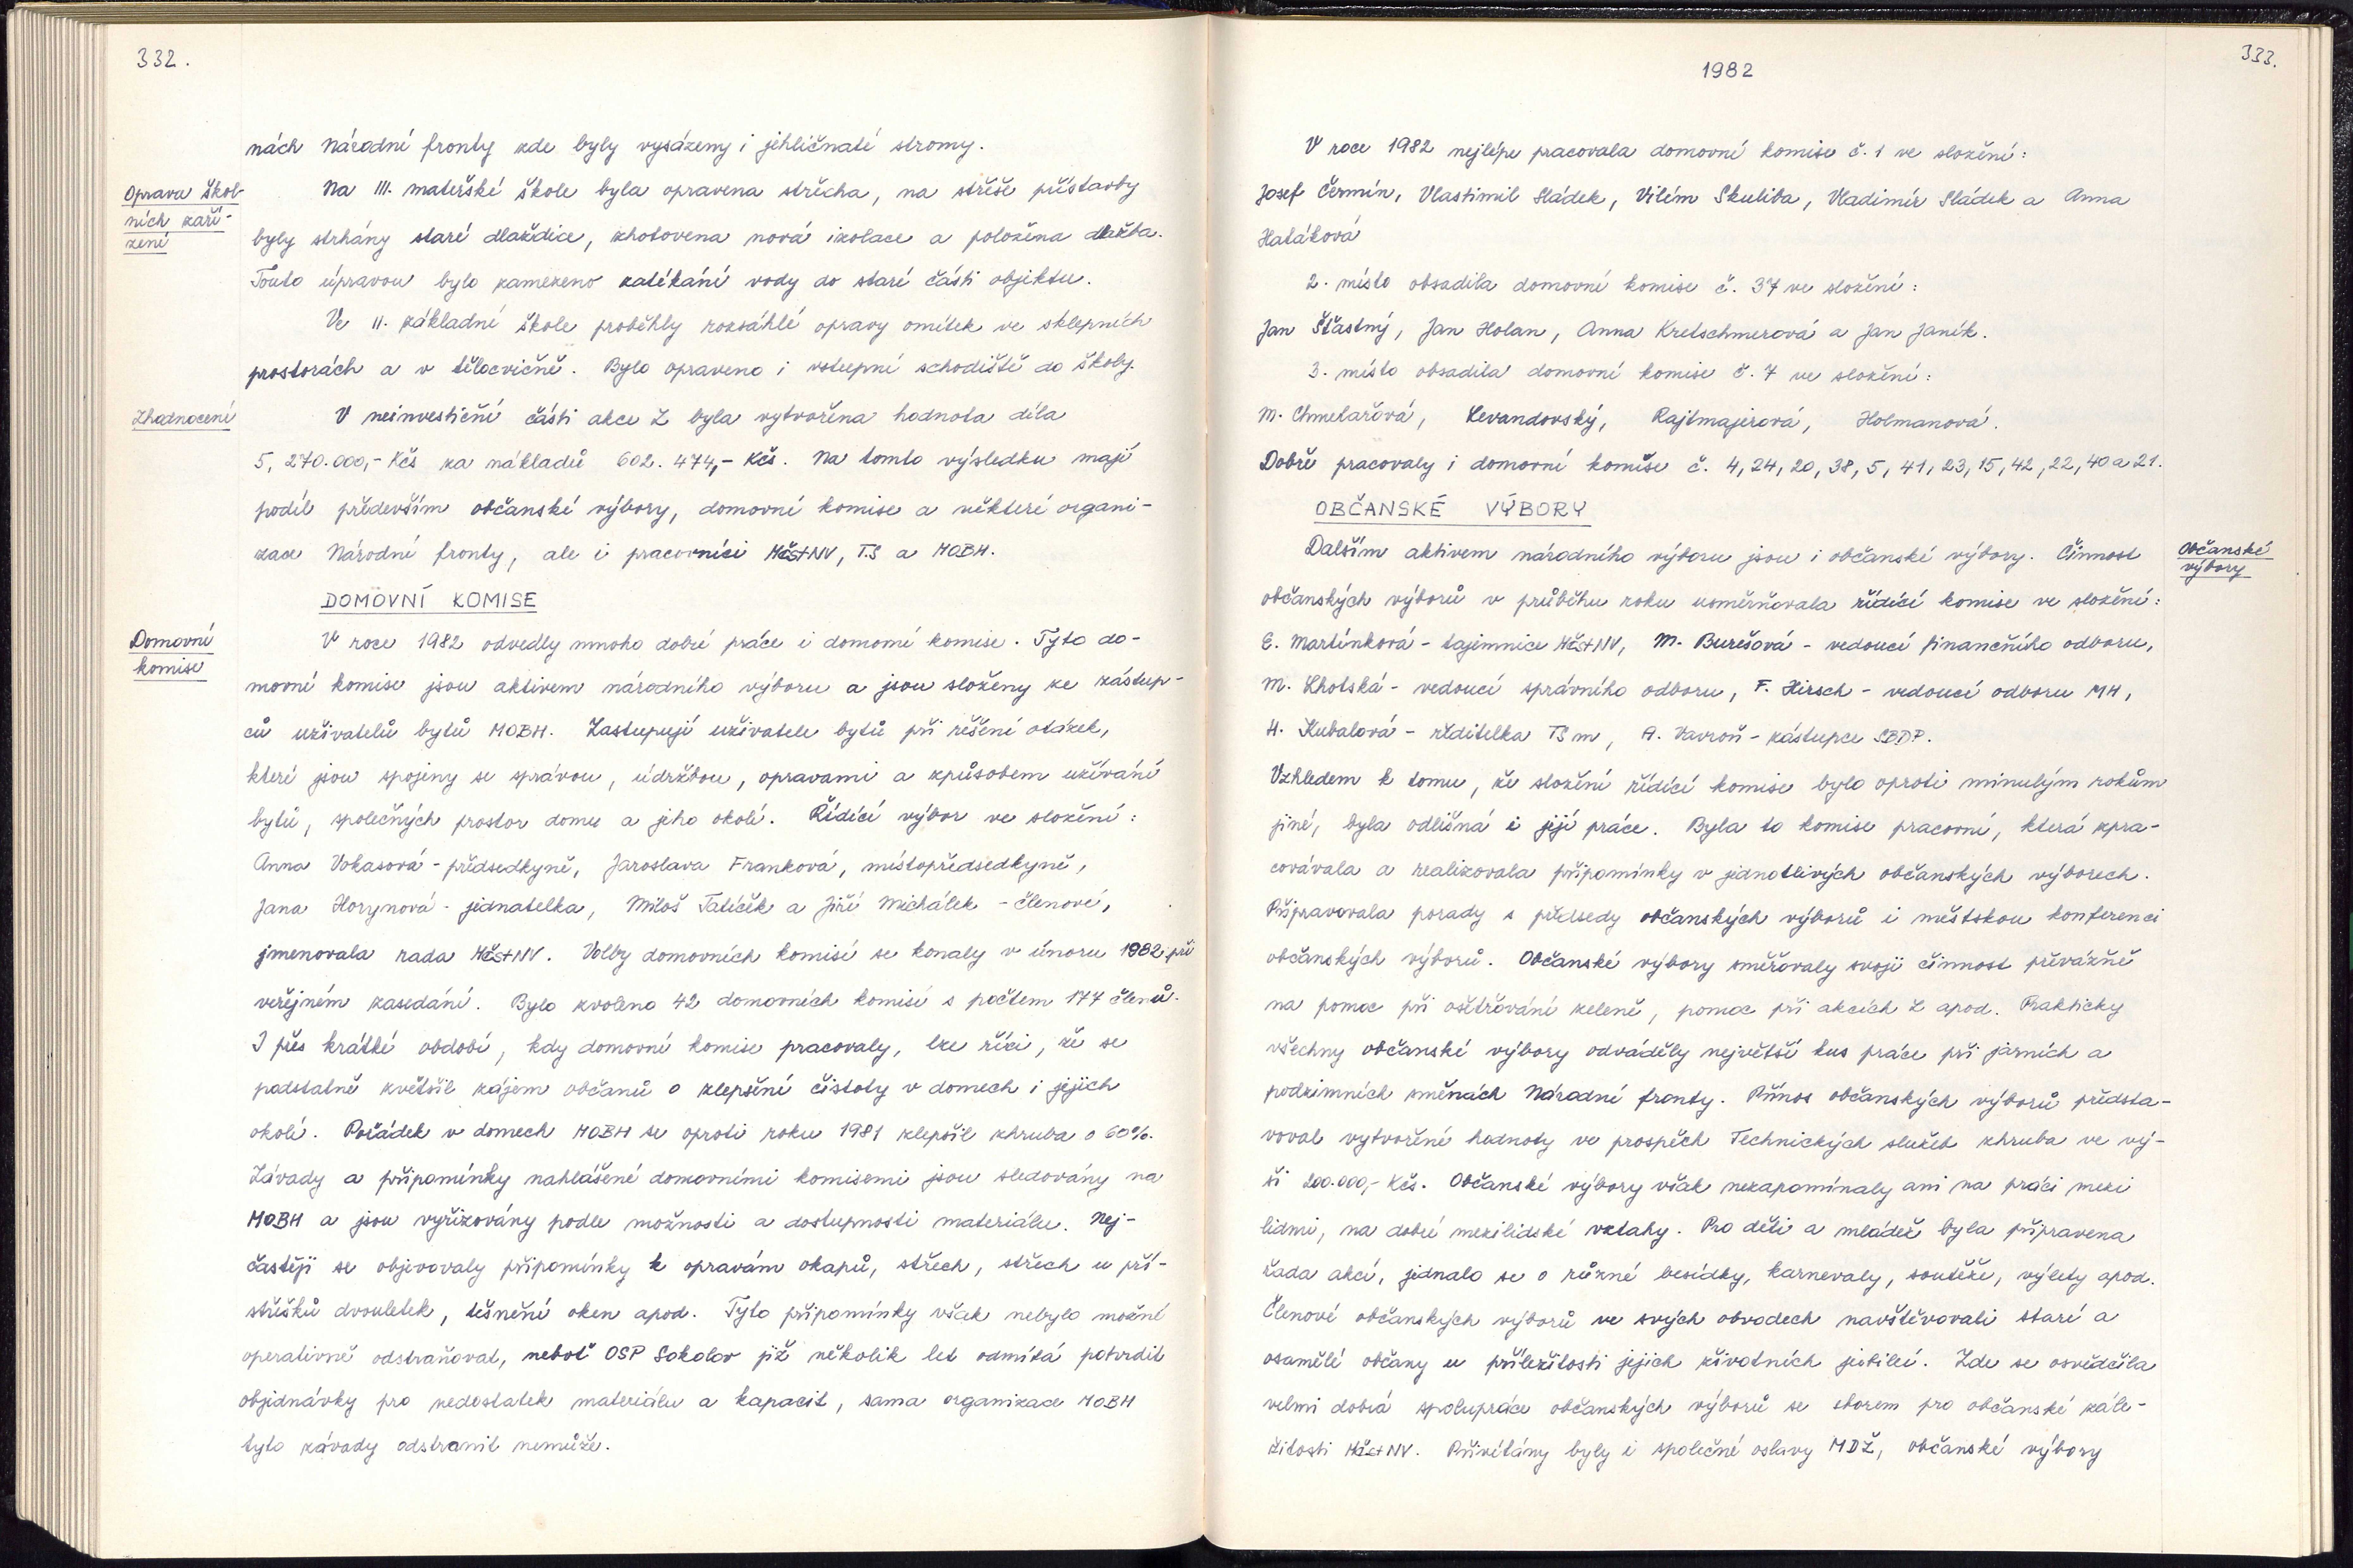 332.
nách Národní fronty kde byly vysázeny i jehličnaté stromy.
Oprava škol-
ních zaří-
zení
Na III. mateřské škole byla opravena střecha, na střeše přístavby
byly strhány staré dlaždice, zhotovena nová izolace a položena dlažba.
Touto úpravou bylo zamezeno zatékání vody do staré části objektu.
Ve II. základní škole proběhly rozsáhlé opravy omítek ve sklepních
prostorách a v tělocvičně. Bylo opraveno i vstupní schodiště do školy.
Zhodnocení
V neinvestiční části akce Z byla vytvořena hodnota díla
5, 270.000,- Kčs za nákladů 602. 474,- Kčs. Na tomto výsledku mají
podíl především občanské výbory, domovní komise a některé organi-
zace Národní fronty, ale i pracovníci MěstNV, TS a MOBH.
DOMOVNÍ KOMISE
Domovní
komise
V roce 1982 odvedly mnoho dobré práce i domovní komise. Tyto do-
movní komise jsou aktivem národního výboru a jsou složeny ze zástup-
ců uživatelů bytů MOBH. Zastupují uživatele bytů při řešení otázek,
které jsou spojeny se správou, údržbou, opravami a způsobem užívání
bytů, společných prostor domu a jeho okolí. Řídící výbor ve složení:
Anna Vokasová - předsedkyně, Jaroslava Franková, místopředsedkyně,
Jana Horynová - jednatelka, Miloš Tatíček a Jiří Michálek - členové,
jmenovala rada MěstNV. Volby domovních komisí se konaly v únoru 1982 při
veřejném zasedání. Bylo zvoleno 42 domovních komisí s počtem 177 členů.
I přes krátké období, kdy domovní komise pracovaly, lze říci, že se
podstatně zvětšil zájem občanů o zlepšení čistoty v domech i jejich
okolí. Pořádek v domech MOBH se oproti roku 1981 zlepšil zhruba o 60%.
Závady a připomínky nahlášené domovními komisemi jsou sledovány na
MOBH a jsou vyřizovány podle možnosti a dostupnosti materiálu. Nej-
častěji se objevovaly připomínky k opravám okapů, střech, střech u pří-
střešků dvouletek, těsnění oken apod. Tyto připomínky však nebylo možné
operativně odstraňovat, neboť OSP Sokolov již několik let odmítá potvrdit
objednávky pro nedostatek materiálu a kapacit, sama organizace MOBH
tyto závady odstranit nemůže.
333.
1982
V roce 1982 nejlépe pracovala domovní komise č. 1 ve složení:
Josef Čermín, Vlastimil Sládek, Vilém Skuliba, Vladimír Sládek a Anna
Hatáková
2. místo obsadila domovní komise č. 37 ve složení:
Jan Šťastný, Jan Holan, Anna Kretschmerová a Jan Janík.
3. místo obsadila domovní komise č. 7 ve složení:
M. Chmelařová, Levandovský, Rajtmajerová, Holmanová.
Dobře pracovaly i domovní komise č. 4, 24, 20, 38, 5, 41, 23, 15, 42, 22, 40 a 21.
OBČANSKÉ VÝBORY
Občanské
výbory
Dalším aktivem národního výboru jsou i občanské výbory. Činnost
občanských výborů v průběhu roku usměrňovala řídící komise ve složení:
E. Martínková - tajemnice MěstNV, M. Burešová - vedoucí finančního odboru,
M. Lhotská - vedoucí správního odboru, F. Hirsch - vedoucí odboru MH,
H. Kubalová - ředitelka TSm, A. Vavroň - zástupce SBDP.
Vzhledem k tomu, že složení řídící komise bylo oproti minulým rokům
jiné, byla odlišná i její práce. Byla to komise pracovní, která zpra-
covávala a realizovala připomínky v jednotlivých občanských výborech.
Připravovala porady s předsedy občanských výborů i městskou konferenci
občanských výborů. Občanské výbory směřovaly svoji činnost převážně
na pomoc při ošetřování zeleně, pomoc při akcích Z apod. Prakticky
všechny občanské výbory odváděly největší kus práce při jarních a
podzimních směnách Národní fronty. Přínos občanských výborů předsta-
voval vytvořené hodnoty ve prospěch Technických služeb zhruba ve vý-
ši 200.000,- Kčs. Občanské výbory však nezapomínaly ani na práci mezi
lidmi, na dobré mezilidské vztahy. Pro děti a mládež byla připravena
řada akcí, jednalo se o různé besídky, karnevaly, soutěže, výlety apod.
Členové občanských výborů ve svých obvodech navštěvovali staré a
osamělé občany u příležitosti jejich životních jubileí. Zde se osvědčila
velmi dobrá spolupráce občanských výborů se sborem pro občanské zále-
žitosti MěstNV. Přivítány byly i společné oslavy MDŽ, občanské výbory